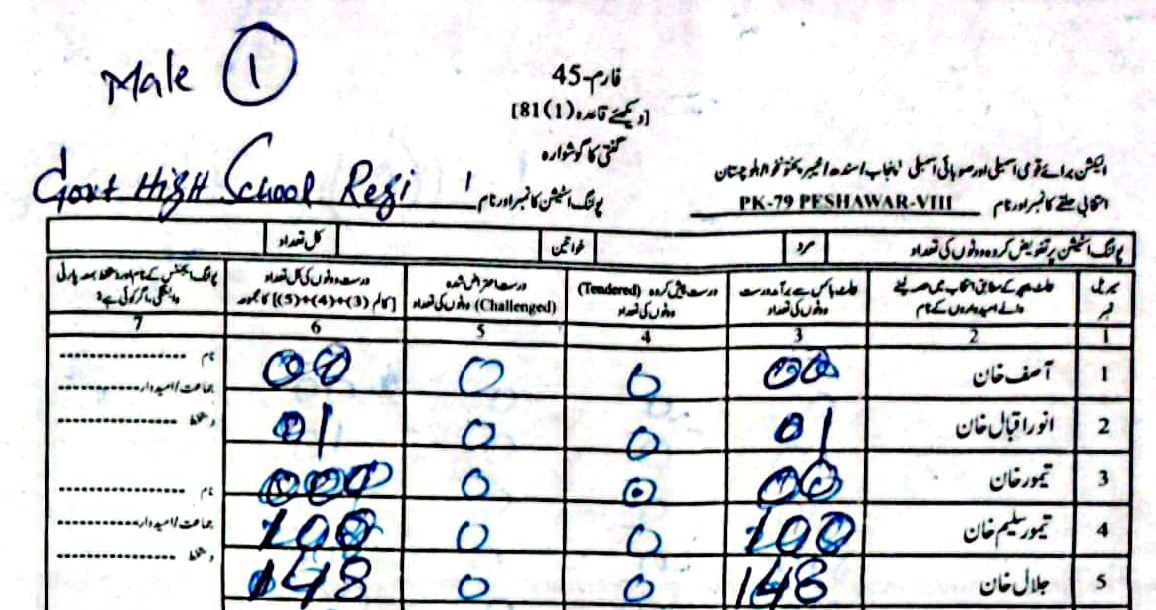 Male 1
فارم-45
[دیکھئے قاعدہ (1)81]
گنتی کا گوشوارہ
الیکشن برائے قومی اسمبلی اور صوبائی اسمبلی پنجاب/سندھ/خیبر پختونخوا/بلوچستان
انتخابی حلقے کا نمبر اور نام PK-79 PESHAWAR-VIII پولنگ اسٹیشن کا نمبر اور نام Govt HIGH School Regi
پولنگ اسٹیشن پر تفویض کردہ ووٹوں کی تعداد مرد خواتین کل تعداد
سیریل نمبر
والے امیدواروں کے نام
ووٹوں کی تعداد
درست پیش کردہ (Tendered) ووٹوں کی تعداد
درست اعتراض شدہ (Challenged) ووٹوں کی تعداد
درست ووٹوں کی کل تعداد [کالم (3)+(4)+(5) کا مجموعہ]
پولنگ ایجنٹس کے نام اور دستخط بمعہ پارٹی وابستگی، اگر کوئی ہے
1 2 3 4 5 6 7
1 آصف خان 00 0 0 00 نام
جماعت/امیدوار
2 انور اقبال خان 01 0 0 01 دستخط
3 تیمور خان 00 0 0 000 نام
4 تیمور سلیم خان 100 0 0 100 جماعت/امیدوار
5 جلال خان 148 0 0 148 دستخط